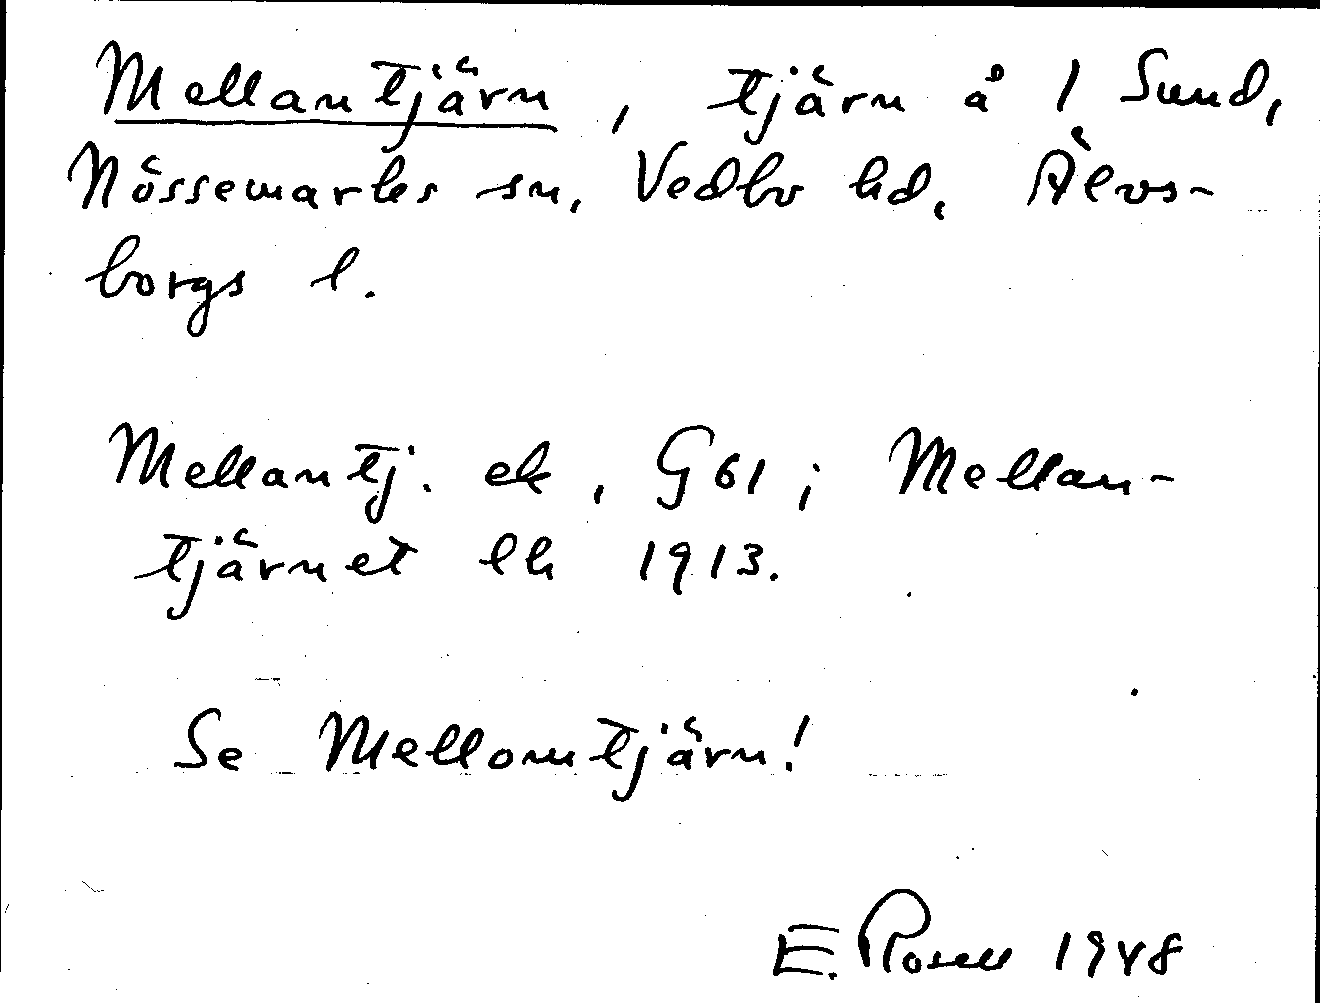 Mellantjärn, tjärn å 1 Sund,
Nössemarks sn, Vedbo hd, Älvs-
borgs l.
Mellantj. ek, G61; Mellan-
tjärnet lh 1913.
Se Mellomtjärn!
E. Rosell 1948